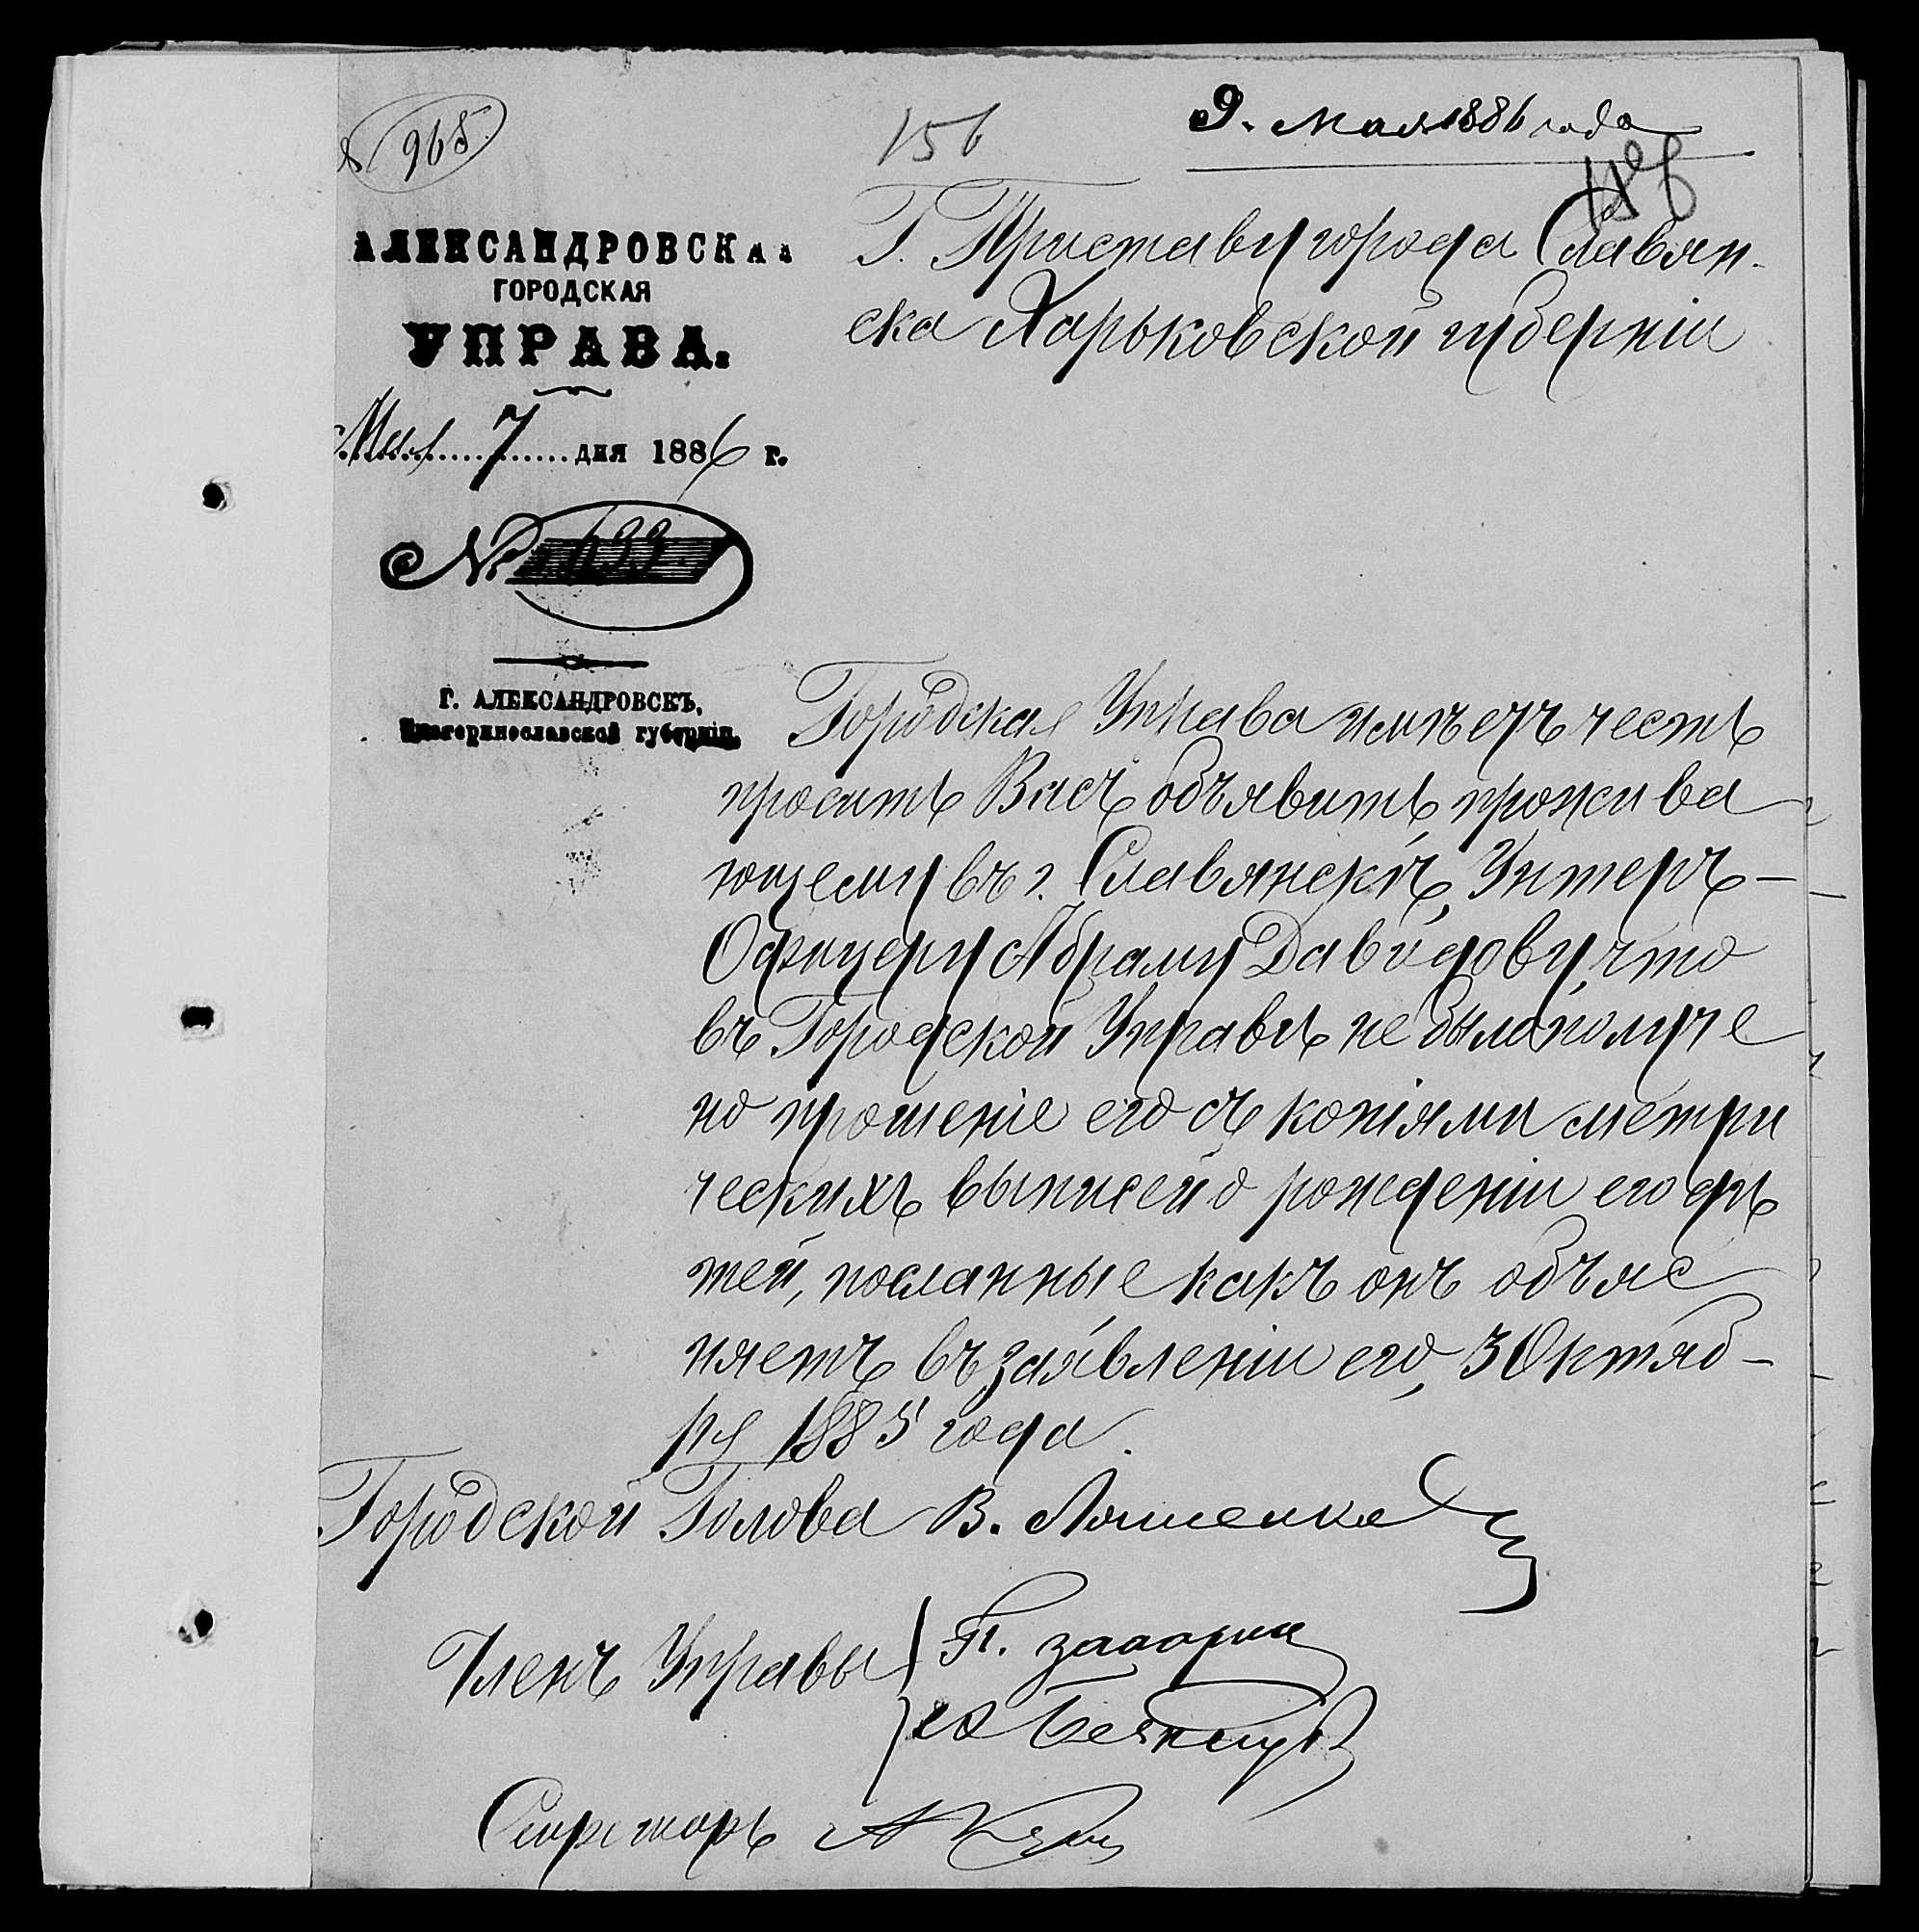 968
156
9. Мая 1886 года
АЛЕКСАНДРОВСКАЯ
ГОРОДСКАЯ
УПРАВА.
Мая 7 дня 1886 г.
№ 633
Г. АЛЕКСАНДРОВСКЪ,
Екатеринославской губерніи.
Г. Приставу города Славян-
ска Харьковской губерніи
Городская Управа имѣетъ честь
просить Васъ объявить прожива
ющему въ г. Славянскѣ, Унтеръ-
Офицеру Абраму Давидову, что
въ Городской Управѣ не было получе
но прошеніе его съ копіями метри
ческихъ выписей о рожденіи его дѣ
тей, посланные какъ онъ объяс
няетъ въ заявленіи его, 3 Октяб-
ря 1885 года.
Городской Голова В. Ляшенко
Членъ Управы
П.
Секретарь А